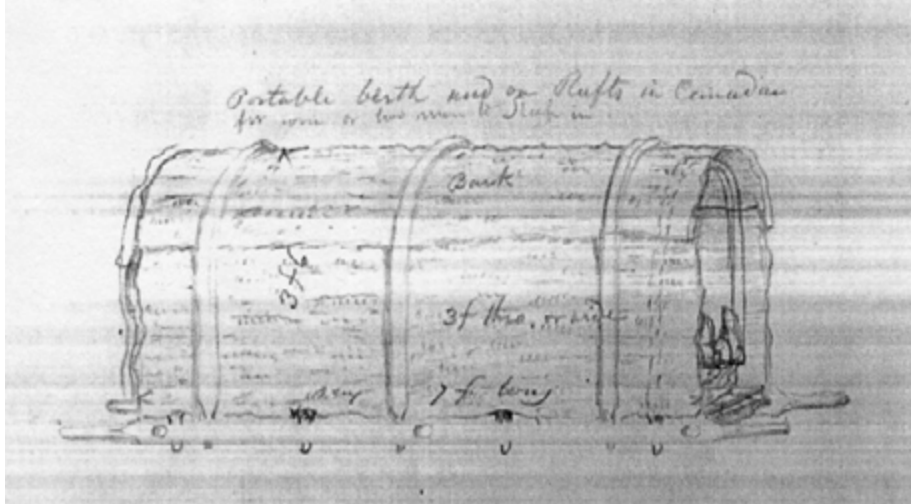 Portable berth used on Rafts in Canadian
for one or two men to Sleep in
Bark
3 f
3 f thro. or wide
7 f. long